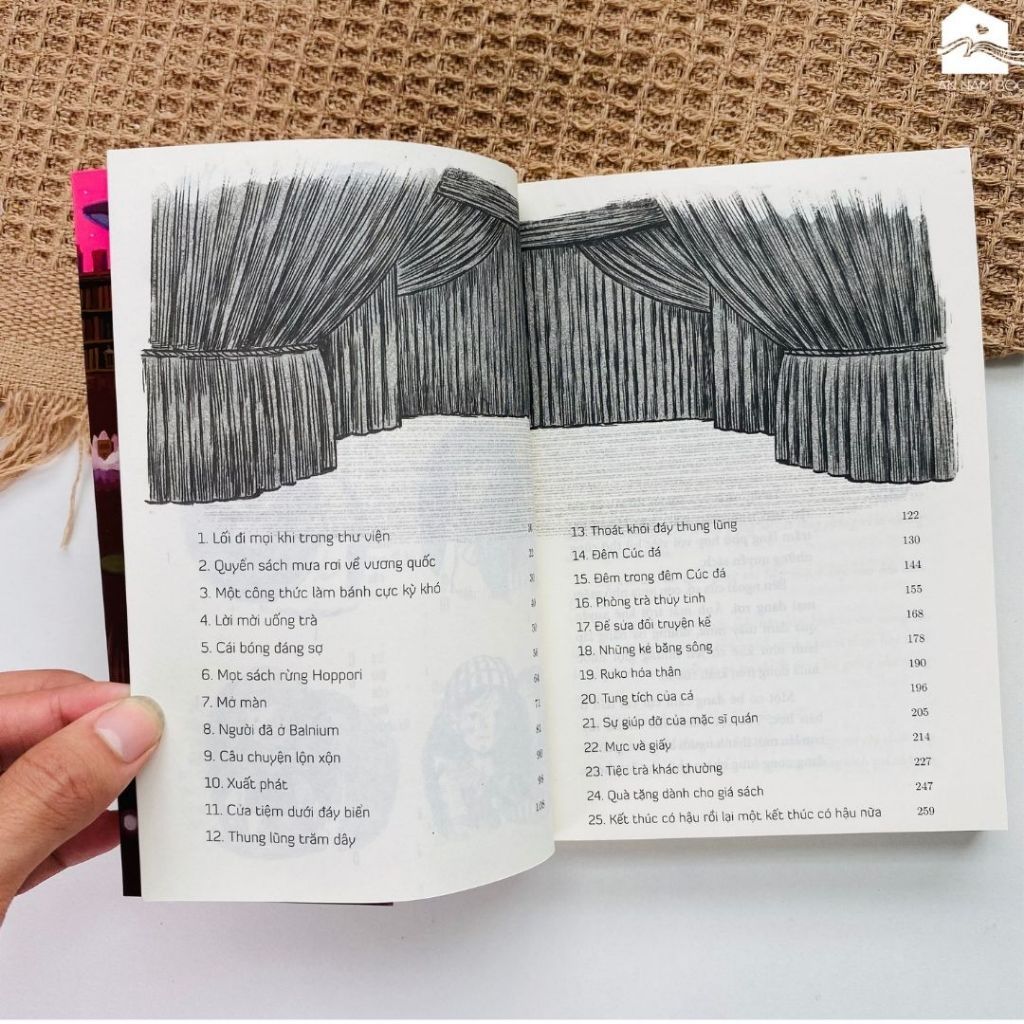 AN NAM
1. Lối đi mọi khi trong thư viện
2. Quyển sách mưa rơi về vương quốc
3. Một công thức làm bánh cực kỳ khó
4. Lời mời uống trà
5. Cái bóng đáng sợ
6. Mọt sách rừng Hoppori 64
7. Mở màn 71
8. Người đã ở Balnium 81
9. Câu chuyện lộn xộn 90
10. Xuất phát 98
11. Cửa tiệm dưới đáy biển 108
12. Thung lũng trăm dây
13. Thoát khỏi đáy thung lũng 122
14. Đêm Cúc đá 130
15. Đêm trong đêm Cúc đá 144
16. Phòng trà thủy tinh 155
17. Để sửa đổi truyện kể 168
18. Những kẻ băng sông 178
19. Ruko hóa thân 190
20. Tung tích của cá 196
21. Sự giúp đỡ của mặc sĩ quán 205
22. Mực và giấy 214
23. Tiệc trà khác thường 227
24. Quà tặng dành cho giá sách 247
25. Kết thúc có hậu rồi lại một kết thúc có hậu nữa 259